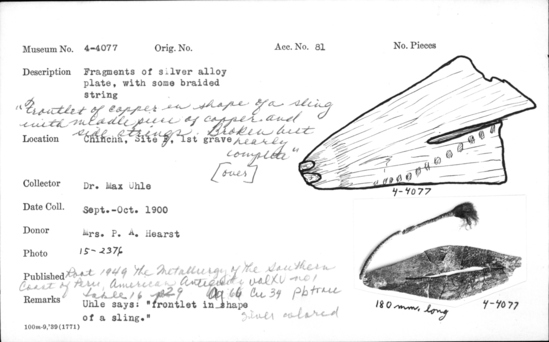 Museum No. 4-4077 Orig. No. Acc. No. 81 No. Pieces
Description Fragments of silver alloy
plate, with some braided
string
"Frontlet of copper in shape of a sling
with middle piece of copper and
side strings. Broken but
Location Chincha, Site F, 1st grave nearly
complete"
[over]
4-4077
Collector Dr. Max Uhle
Date Coll. Sept.-Oct. 1900
Donor Mrs. P. A. Hearst
Photo 15-2376
Published Root 1949 The Metallurgy of the Southern
Coast of Peru, American Antiquity vol XV no 1
table 16 p29 Ag 66 Cu 39 Pb trace
Remarks Uhle says: "frontlet in shape
of a sling." Silver colored
180 mm, long 4-4077
100m-9,'39(1771)